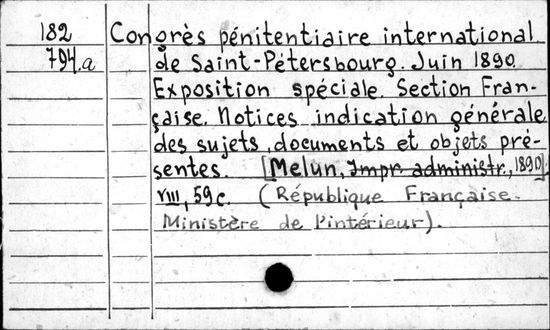 182 Congrès pénitentiaire international
794.a de Saint-Pétersbourg. Juin 1890.
Exposition spéciale. Section Fran-
çaise. Notices indication générale
des sujets, documents et objets pré-
sentes. [Melun, Impr. administr., 1890].
VIII, 59 c. (République Française.
Ministère de l'intérieur).